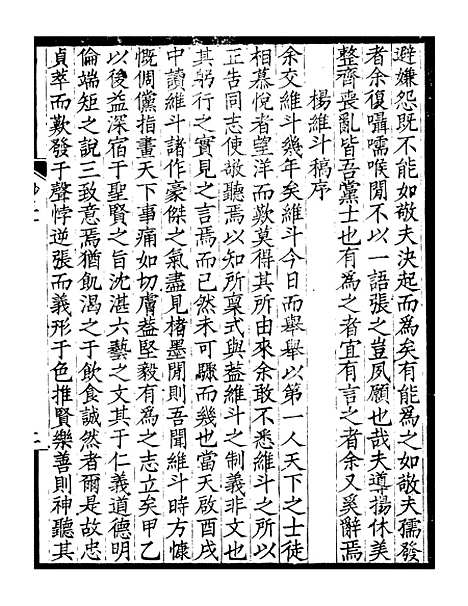 避嫌怨既不能如敬夫決起而爲矣有能爲之如敬夫孺發
者余復囁嚅喉閒不以一語張之豈夙願也哉夫導揚休美
整齊喪亂皆吾黨士也有爲之者宜有言之者余又奚辭焉
楊維斗稿序
余交維斗幾年矣維斗今日而舉舉以第一人天下之士徒
相慕悅者望洋而歎莫得其所由來余敢不悉維斗之所以
正告同志使敬聽焉以知所稟式與蓋維斗之制義非文也
其躬行之實見之言焉而已然未可驟而幾也當天啟酉戌
中讀維斗諸作豪傑之氣盡見楮墨閒則吾聞維斗時方慷
慨倜儻指畫天下事痛如切膚蓋堅毅有爲之志立矣甲乙
以後益深宿于聖賢之旨沈湛六藝之文其于仁義道德明
倫端矩之說三致意焉猶飢渴之于飲食誠然者爾是故忠
貞萃而歎發于聲悖逆張而義形于色推賢樂善則神聽其
二